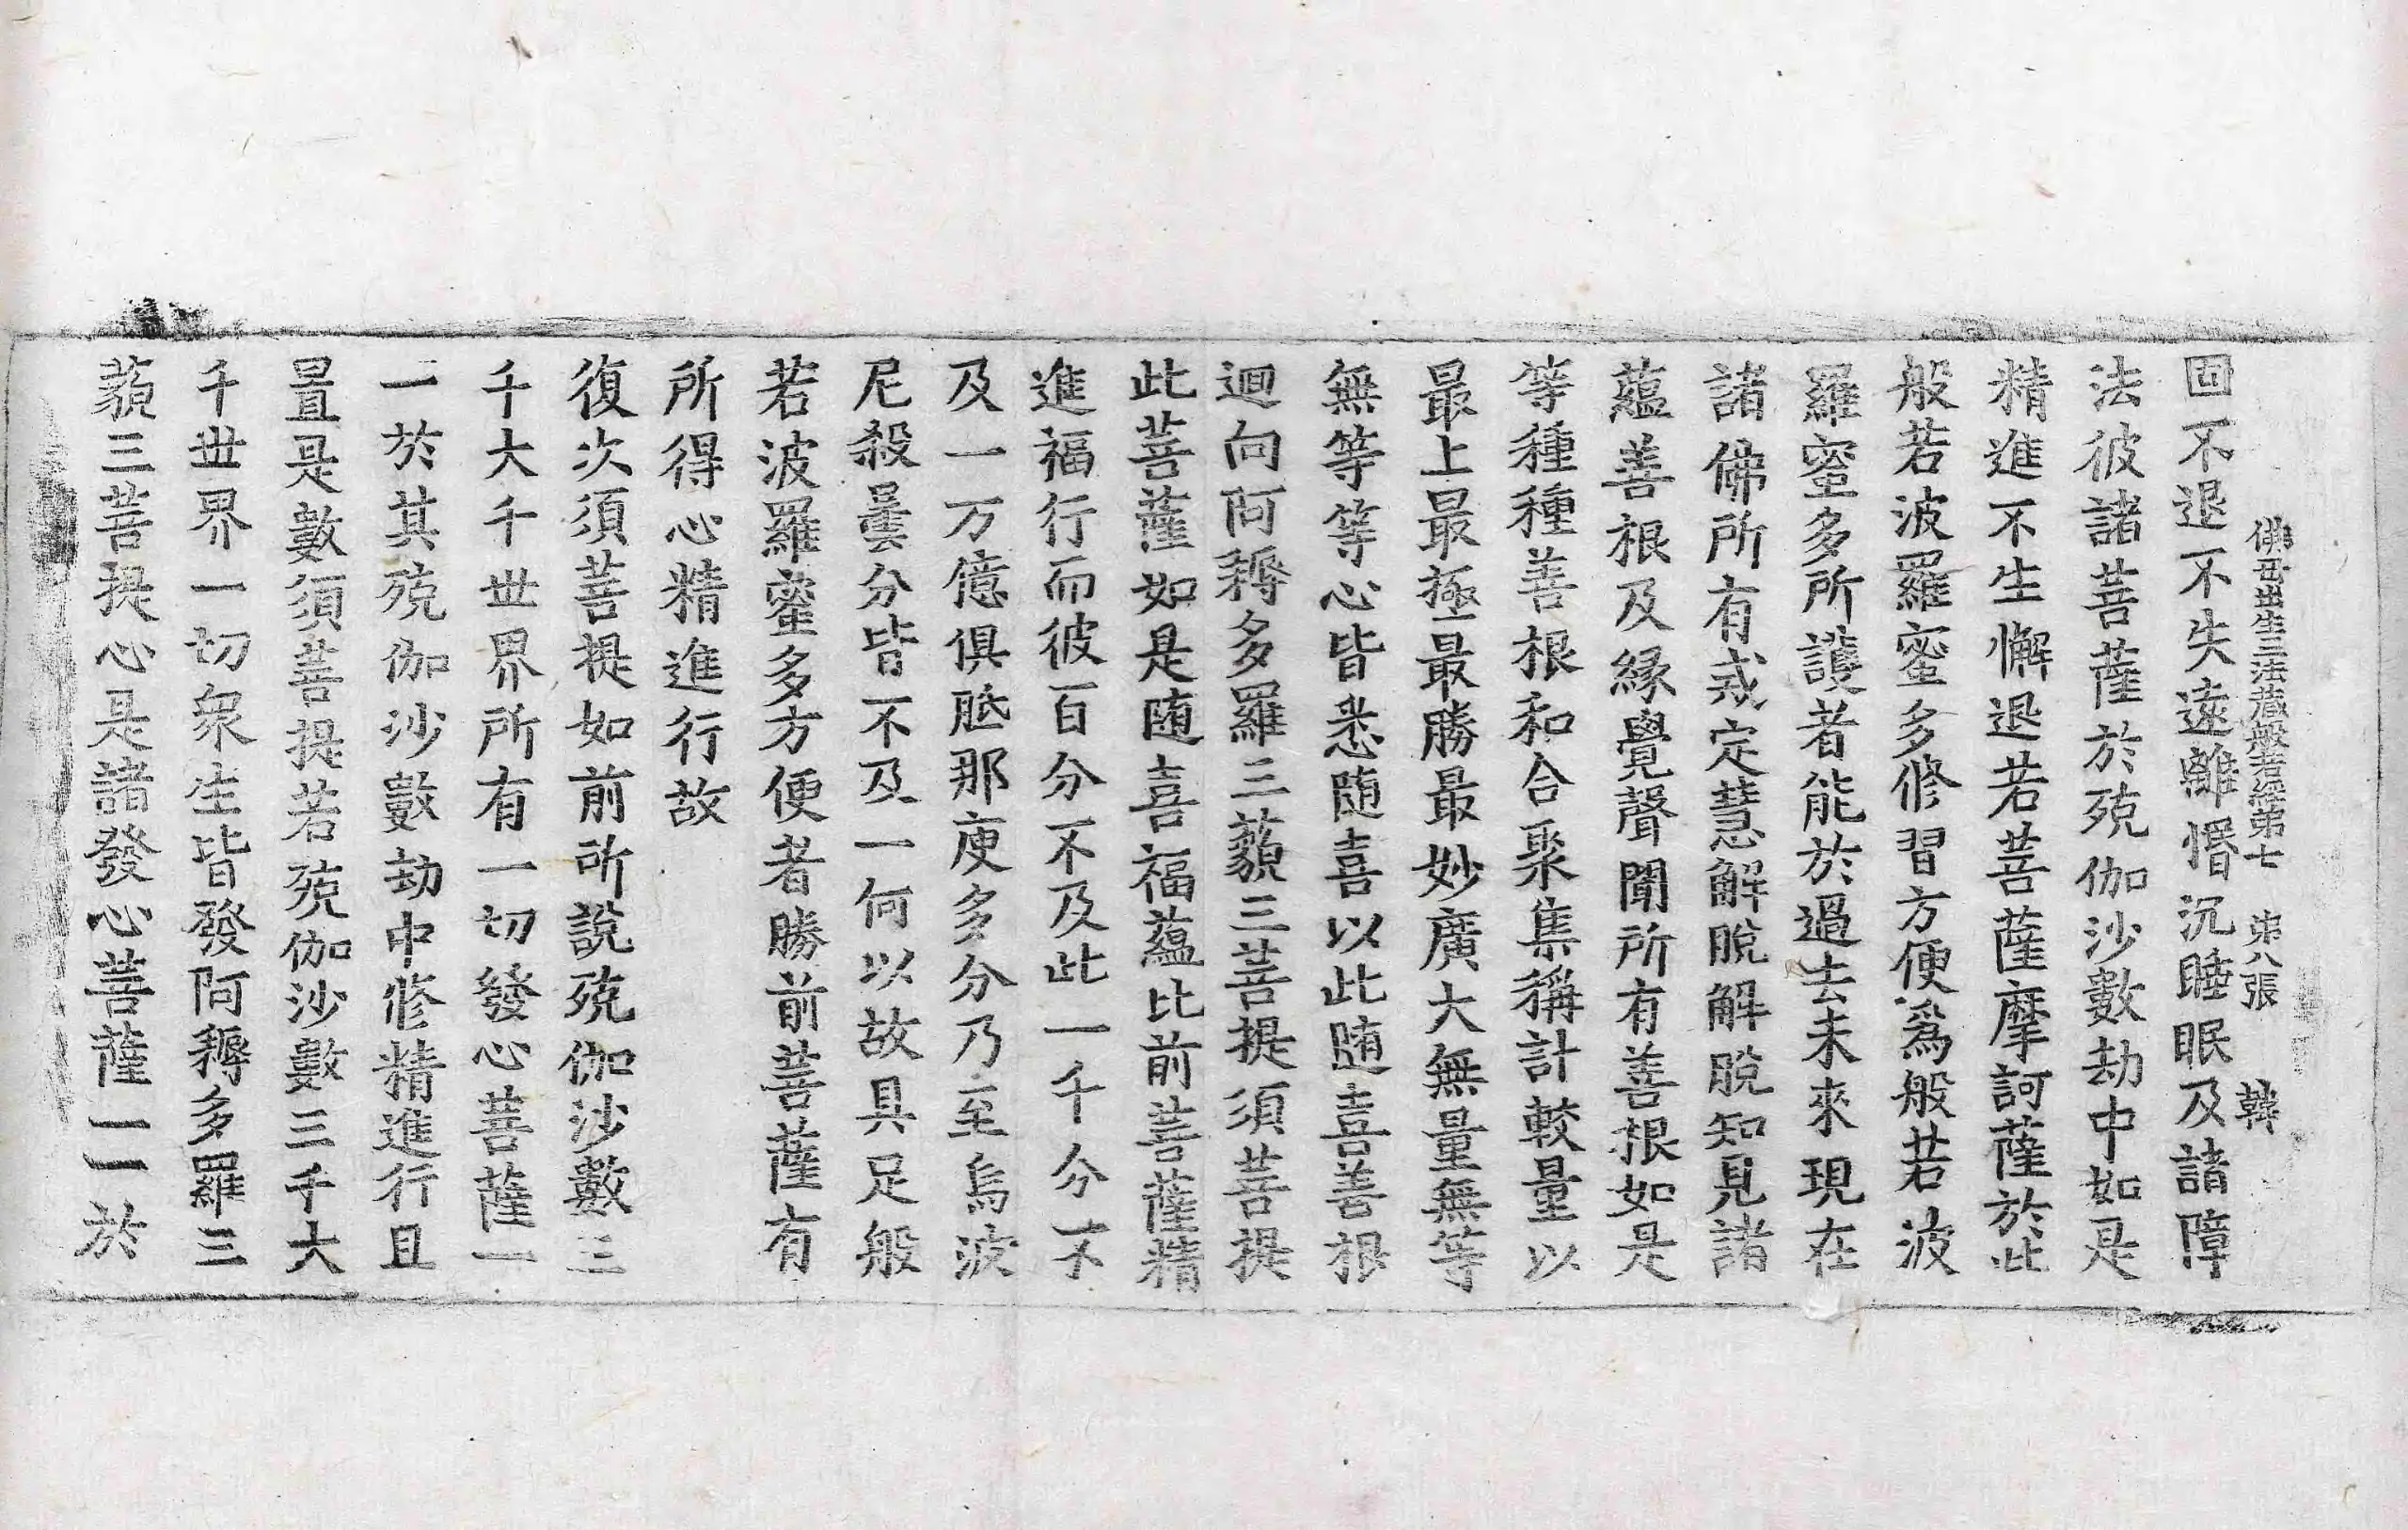 佛母出生三法藏般若經第七　第八張　韓
固不退不失遠離惛沉睡眠及諸障
法彼諸菩薩於殑伽沙數劫中如是
精進不生懈退若菩薩摩訶薩於此
般若波羅蜜多修習方便爲般若波
羅蜜多所護者能於過去未來現在
諸佛所有戒定慧解脫解脫知見諸
蘊善根及緣覺聲聞所有善根如是
等種種善根和合聚集稱計較量以
最上最極最勝最妙廣大無量無等
無等等心皆悉隨喜以此隨喜善根
迴向阿耨多羅三藐三菩提須菩提
此菩薩如是隨喜福蘊比前菩薩精
進福行而彼百分不及此一千分不
及一万億俱胝那庾多分乃至烏波
尼殺曇分皆不及一何以故具足般
若波羅蜜多方便者勝前菩薩有
所得心精進行故
復次須菩提如前所說殑伽沙數三
千大千世界所有一切發心菩薩一
一於其殑伽沙數劫中修精進行且
置是數須菩提若殑伽沙數三千大
千世界一切衆生皆發阿耨多羅三
藐三菩提心是諸發心菩薩一一於